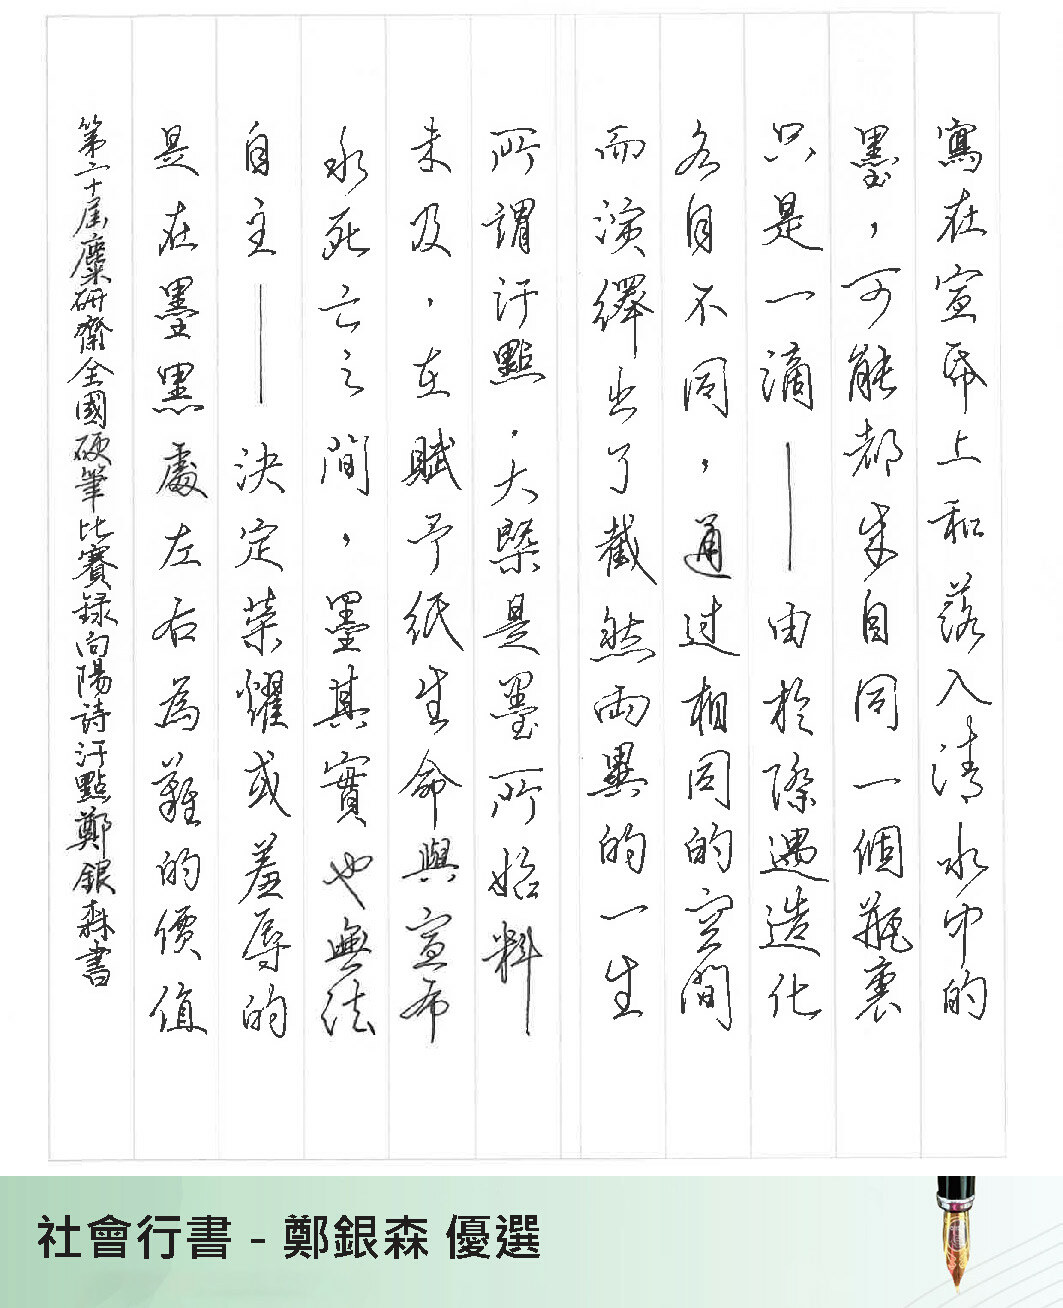 寫在宣帋上和落入清水中的
墨，可能都来自同一個瓶裏
只是一滴——由於際遇造化
各自不同，通过相同的空間
而演繹出了截然兩異的一生
所謂汙點，大槩是墨所始料
未及，在賦予纸生命與宣布
永死亡之間，墨其實也無法
自主——決定荣耀或羞辱的
是在墨黑處左右為難的價值
第二十届麋研齋全國硬筆比賽録向陽詩汙點鄭銀森書
社會行書 - 鄭銀森 優選